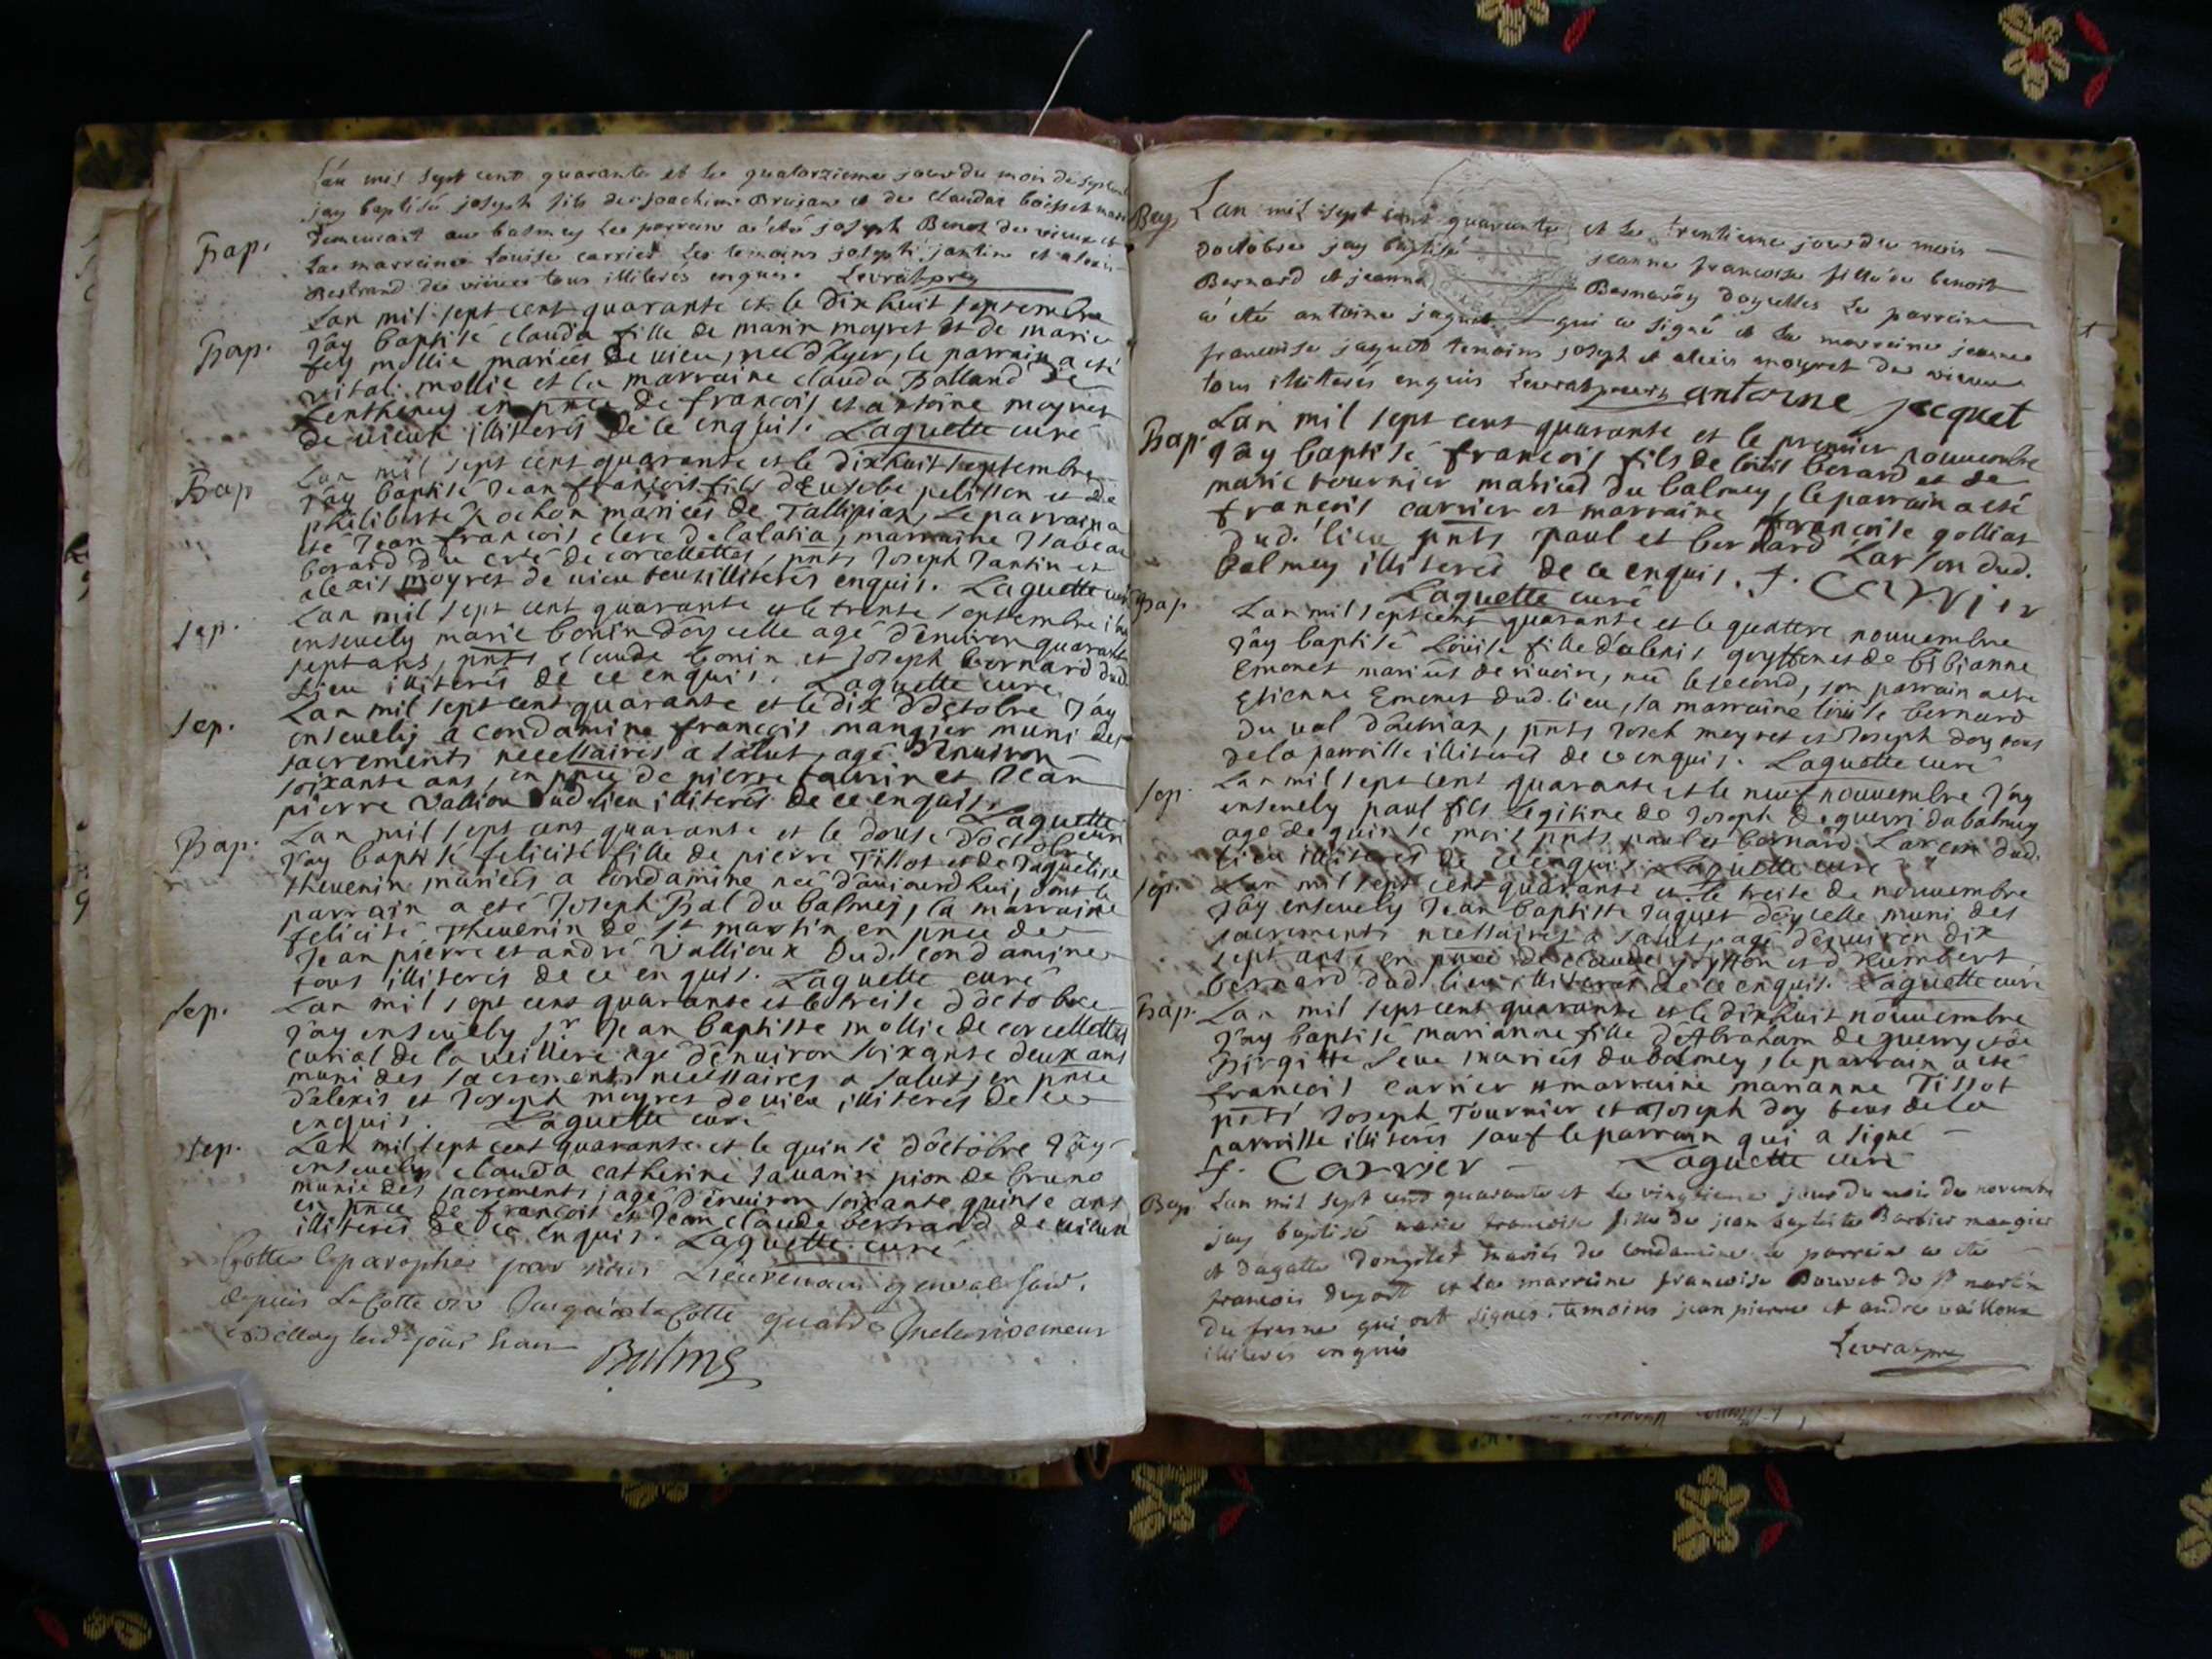 Lan mil sept cent quarante et le quatorzieme jour du mois de septemb
jay baptisé joseph fils de joachim Brujan et de claudar boisset mari
Bap. demeurant au balmey Le parrein a été joseph Benoz de vieux et
La marreine Louise carrier Les temoins joseph jantin et alexis
Bertrand de vieux tous illiteres enquis Levratprey
Lan mil sept cent quarante et le dix huit septembre
Bap. J'ay baptisé clauda fille de marin moyret et de marie
fey mollie mariéés de vieu, née d'hyer, le parrain a eté
vital mollie et la marraine clauda Balland de
Lentheney en pnce de françois et antoine moyret
de vieux illiterés de ce enquis. Laguette curé
Lan mil sept cent quarante et le dix huit septembre
Bap J'ay baptisé Jean françois fils d'Eusebe pelisson et de
philiberte Rochon mariéés de Tallissiax, Le parrain a
eté Jean françois clerc de lalatia, marraine Isabeau
berard du creé de corcellettes, pnts Joseph Jantin et
alexis moyret de vieu tous illiterés enquis. Laguette curé
Sep. Lan mil sept cent quarante et le trente septembre i'ay
ensevely marie bonin d'oy celle agé d'environ quarante
sept ans, pnts claude bonin et Joseph bernard dud.
Lieu illiterés de ce enquis. Laguette curé
Sep. Lan mil sept cent quarante et le dix d'octobre J'ay
ensevely a condamine françois mangier muni des
sacrements necessaires a salut, agé d'environ
soixante ans, en pnce de pierre tavvin et Jean
pierre Vallion dud lieu illiterés de ce enquis.
Laguette curé
Bap. Lan mil sept cent quarante et le douse d'octobre
J'ay baptisé felicité fille de pierre Tissot et de Jaqueline
thevenin mariéés a condamine neé d'auiourdhui, dont le
parrain a eté Joseph Bal du balmey, la marraine
felicité Thevenin de st martin en pnce de
Jean pierre et andré Vallioux dud. condamine
tous illiterés de ce enquis. Laguette curé
Sep. Lan mil sept cent quarante et le treise d'octobre
J'ay ensevely sr Jean baptiste mollie de corcellettes
curial de la veilliere agé d'environ soixante deux ans
muni des sacrements necessaires a salut, en pnce
d'alexis et Joseph moyret de vieu illiterés de ce
enquis. Laguette curé
Sep. Lan mil sept cent quarante et le quinse d'octobre J'ay
ensevely clauda catherine savarin pion de bruno
munie des sacrements, agé d'environ soixante quinse ans
en pnce de françois et Jean claude bertrand de vieux
illiterés de ce enquis. Laguette curé
Cotté & paraphé par nous Lieutenant general
depuis La Cotte jusqu'a la Cotte
Balme
Bap Lan mil sept cent quarante et le trentieme jour du mois
doctobre jay baptisé jeanne francoise fille de benoit
Bernard et jeanne Bernard doyselles Le parrein
a été antoine jaquet qui a signé et La marreine jeanne
francoise jaquet temoins joseph et alexis moyret de vieux
tous illiterés enquis Levratprey antoine jacquet
Bap. Lan mil sept cent quarante et le premier nouvembre
J'ay baptisé françois fils de loüis berard et de
marie tournier mariéés du balmey, le parrain a eté
françois carrier et marraine françoise golliat
dud. lieu pnts paul et bernard Larson dud.
balmey illiterés de ce enquis. f. carrier
Laguette curé
Bap. Lan mil sept cent quarante et le quattre nouvembre
J'ay baptisé Loüise fille d'alexis goyffon et de bibianne
Emonet mariéés de riviere, neé le second, son parrain a eté
Etienne Emonet dud. lieu, sa marraine loüise bernard
du val d'auvriax, pnts Joseph moyret et Joseph doy tous
de la parroisse illiterés de ce enquis. Laguette curé
Sep. Lan mil sept cent quarante et le neuf nouvembre J'ay
ensevely paul fils Legitime de Joseph deguerri du balmey
agé de quinse mois pnts paul et bernard Larson dud.
lieu illiterés de ce enquis. Laguette curé
Sep. Lan mil sept cent quarante et le treise de nouvembre
J'ay ensevely Jean baptiste Jaquet d'oy celle muni des
sacrements necessaires a salut, agé d'environ dix
sept ans, en pnce de claude goyffon et d'humbert
bernard dud. lieu illiterés de ce enquis. Laguette curé
Bap. Lan mil sept cent quarante et le dix huit nouvembre
J'ay baptisé marianne fille d'Abraham de guerry et de
Birgitte Seve mariéés du balmey, le parrain a eté
françois carrier et marraine marianne Tissot
pnts Joseph Tournier et Joseph doy tous de la
parroisse illiterés sauf le parrain qui a signé
f. carrier Laguette curé
Bap. Lan mil sept cent quarante et Le vingtieme jour du mois de novembre
jay baptisé marie francoise fille de jean baptiste Barbier mangier
et dagatte Dongilet mariés de condamine Le parrein a été
francois dupont et La marreine francoise Bouvet de st martin
du fresne qui ont signés. temoins jean pierre et andré vailloux
illiterés enquis Levratprey